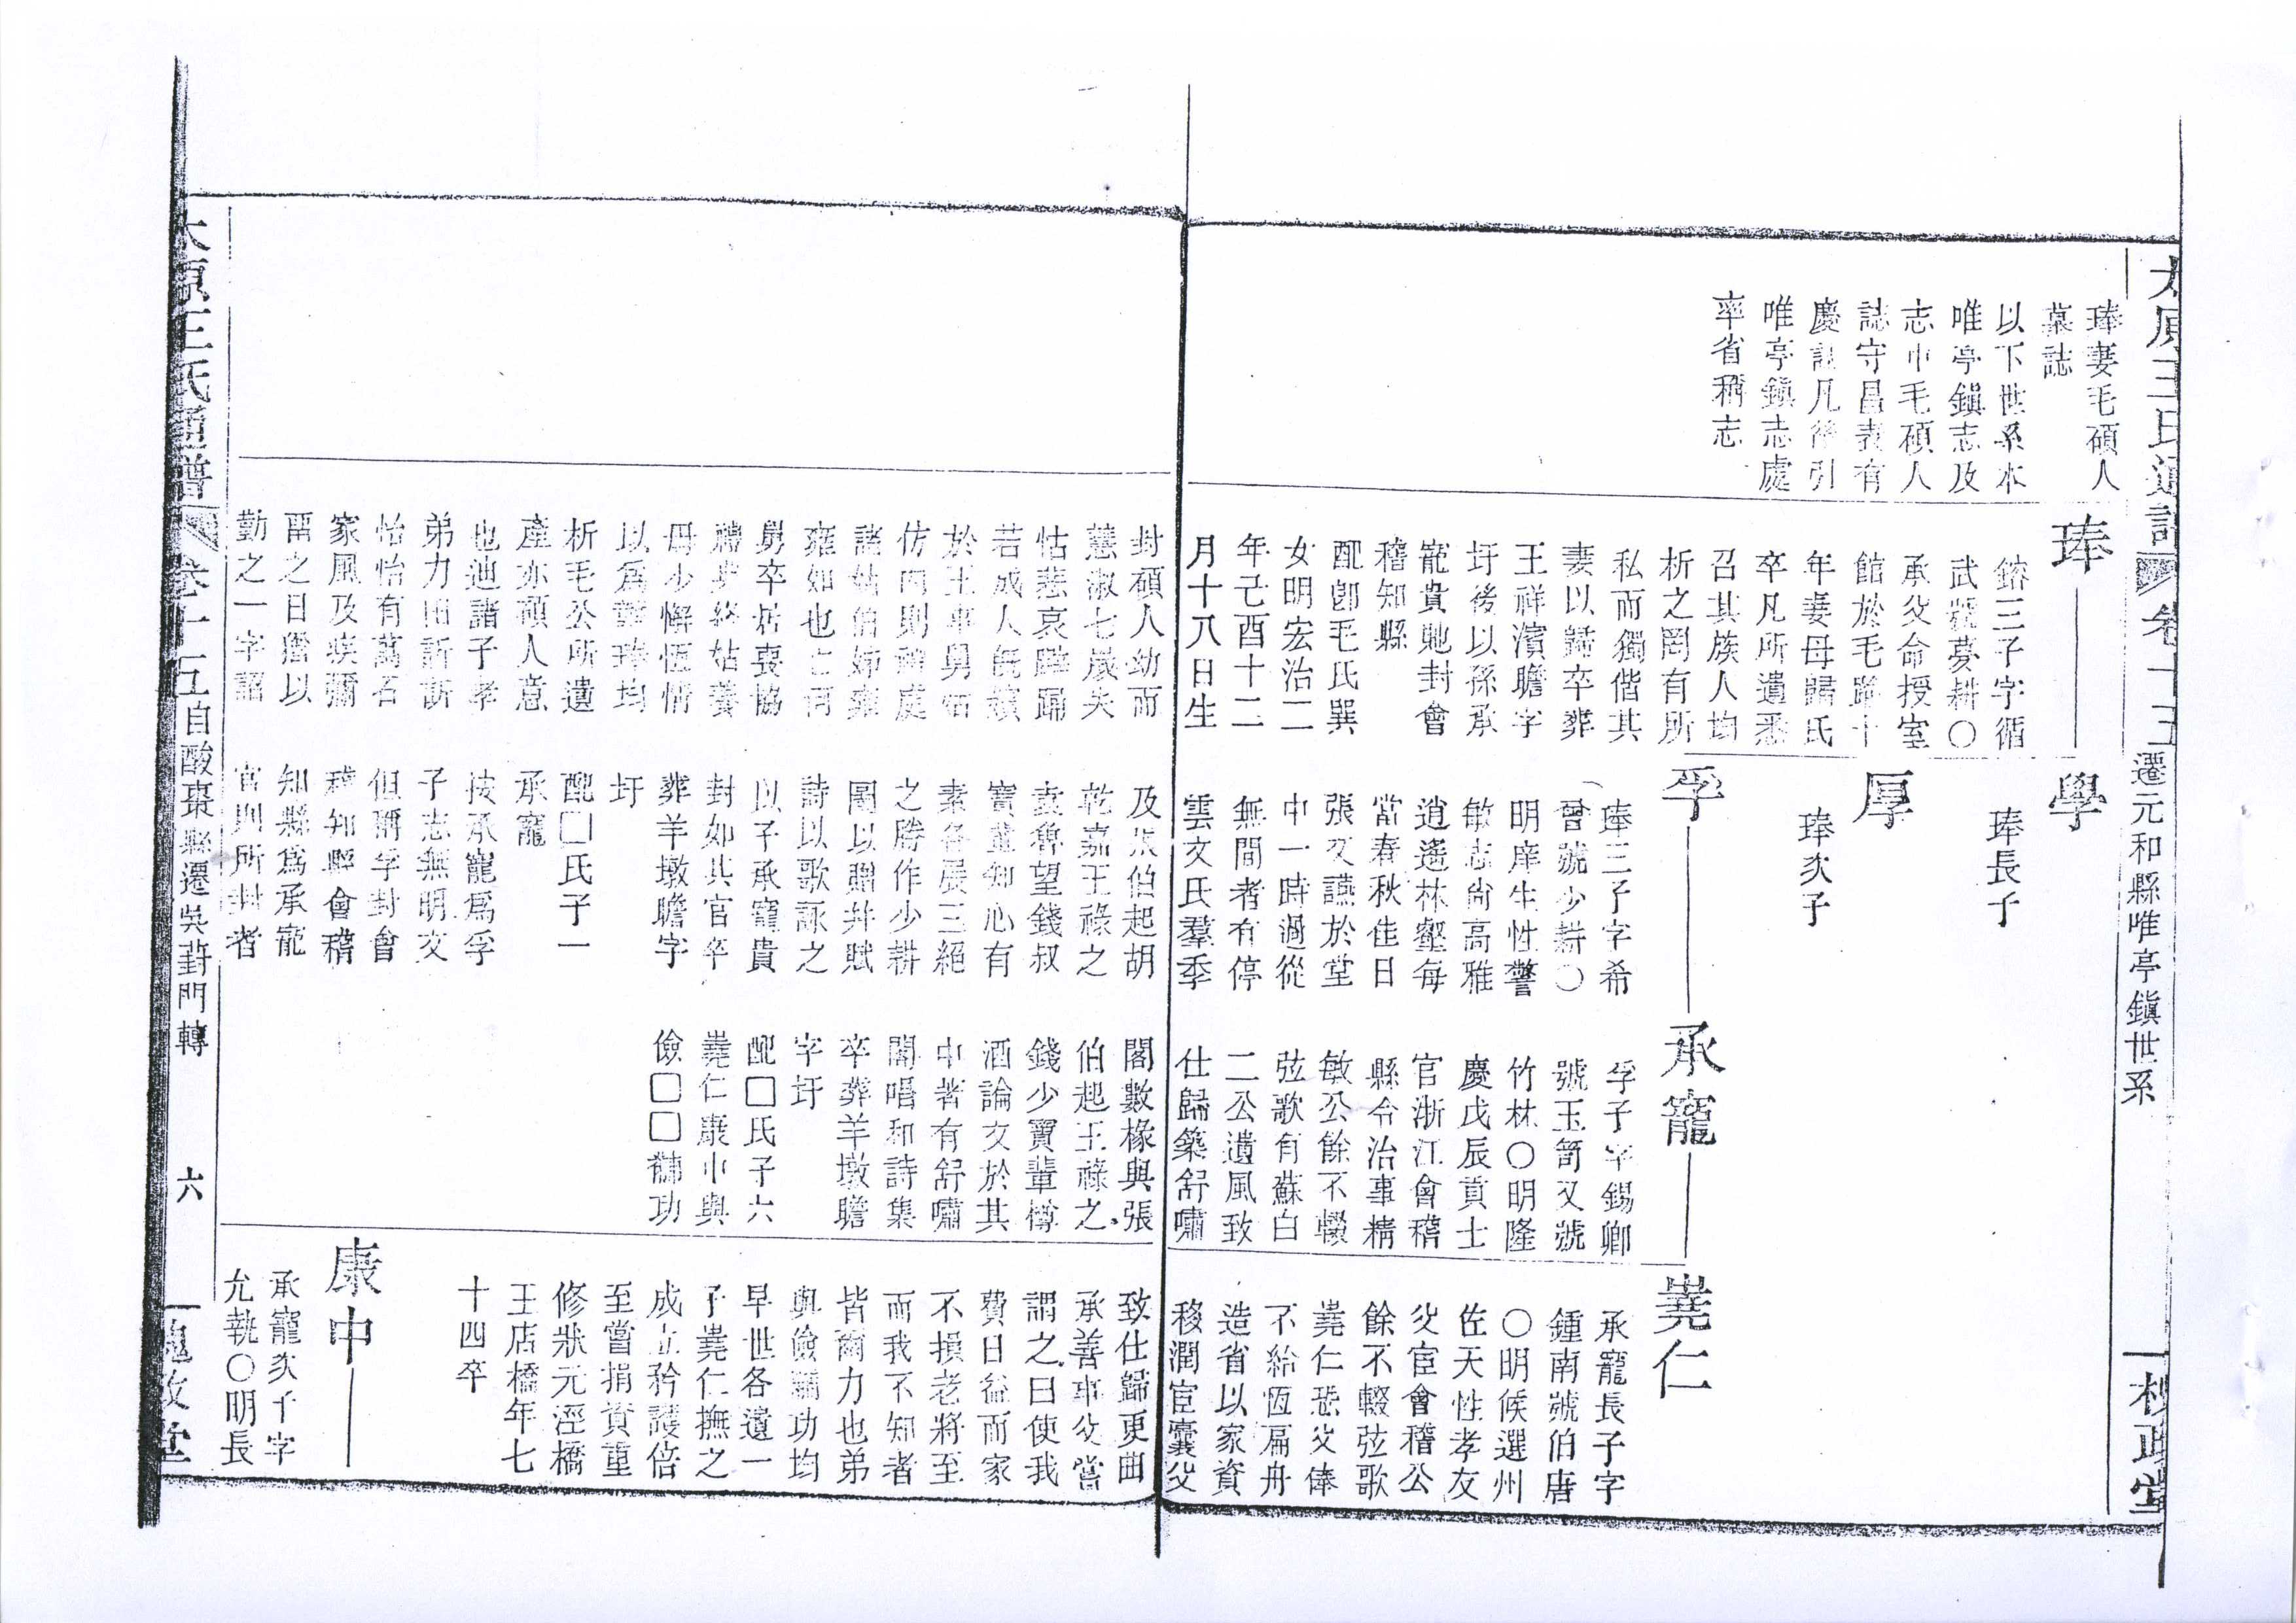 太原王氏通譜
卷十五
遷元和縣唯亭鎮世系
槐政堂
琫妻毛碩人
墓誌
以下世系本
唯亭鎮志及
志中毛碩人
誌守昌表有
慶註凡後引
唯亭鎮志處
率省稱志
琫
鎔三子字循
武號夢耕〇
承父命授室
館於毛踰十
年妻母歸氏
卒凡所遺悉
召其族人均
析之罔有所
私而獨偕其
妻以歸卒葬
王祥濱瞻字
圩後以孫承
寵貴貤封會
稽知縣
配卽毛氏巽
女明宏治二
年己酉十二
月十八日生
封碩人幼而
慧淑七歲失
怙悲哀躃踊
若成人旣嬪
於王事舅姑
仿內則禮處
諸姑伯姊雍
雍如也亡何
舅卒居喪協
禮與終姑養
毋少懈恆情
以爲難琫均
析毛公所遺
產亦碩人意
也迪諸子孝
弟力田訢訢
怡怡有萬石
家風及疾彌
留之日猶以
勤之一字詔
學
琫長子
厚
琫次子
孚
琫三子字希
曾號少耕〇
明庠生性警
敏志尚高雅
逍遙林壑每
當春秋佳日
張文讌於堂
中一時過從
無間者有停
雲文氏羣季
及張伯起胡
乾嘉王祿之
袁魯望錢叔
寶董知心有
素各展三絕
之勝作少耕
圖以贈幷賦
詩以歌詠之
以子承寵貴
封如其官卒
葬羊墩瞻字
圩
配囗氏子一
承寵
按承寵爲孚
子志無明文
但稱孚封會
稽知縣會稽
知縣爲承寵
官則所封者
承寵
孚子字錫卿
號玉笥又號
竹林〇明隆
慶戊辰貢士
官浙江會稽
縣令治事精
敏公餘不輟
弦歌有蘇白
二公遺風致
仕歸築舒嘯
閣數椽與張
伯起王祿之
錢少寶輩樽
酒論文於其
中著有舒嘯
閣唱和詩集
卒葬羊墩瞻
字圩
配囗氏子六
蕘仁康中與
儉囗囗黼功
蕘仁
承寵長子字
鍾南號伯唐
〇明候選州
佐天性孝友
父宦會稽公
餘不輟弦歌
蕘仁恐父俸
不給恆扁舟
造省以家資
移潤宦囊父
致仕歸更曲
承善事父嘗
謂之曰使我
費日益而家
不損老將至
而我不知者
皆爾力也弟
與儉黼功均
早世各遺一
子蕘仁撫之
成立矜護倍
至嘗捐資重
修狀元涇橋
王店橋年七
十四卒
康中
承寵次子字
允執〇明長
太原王氏通譜
卷十五
自酸棗縣遷吳葑門轉
六
槐政堂